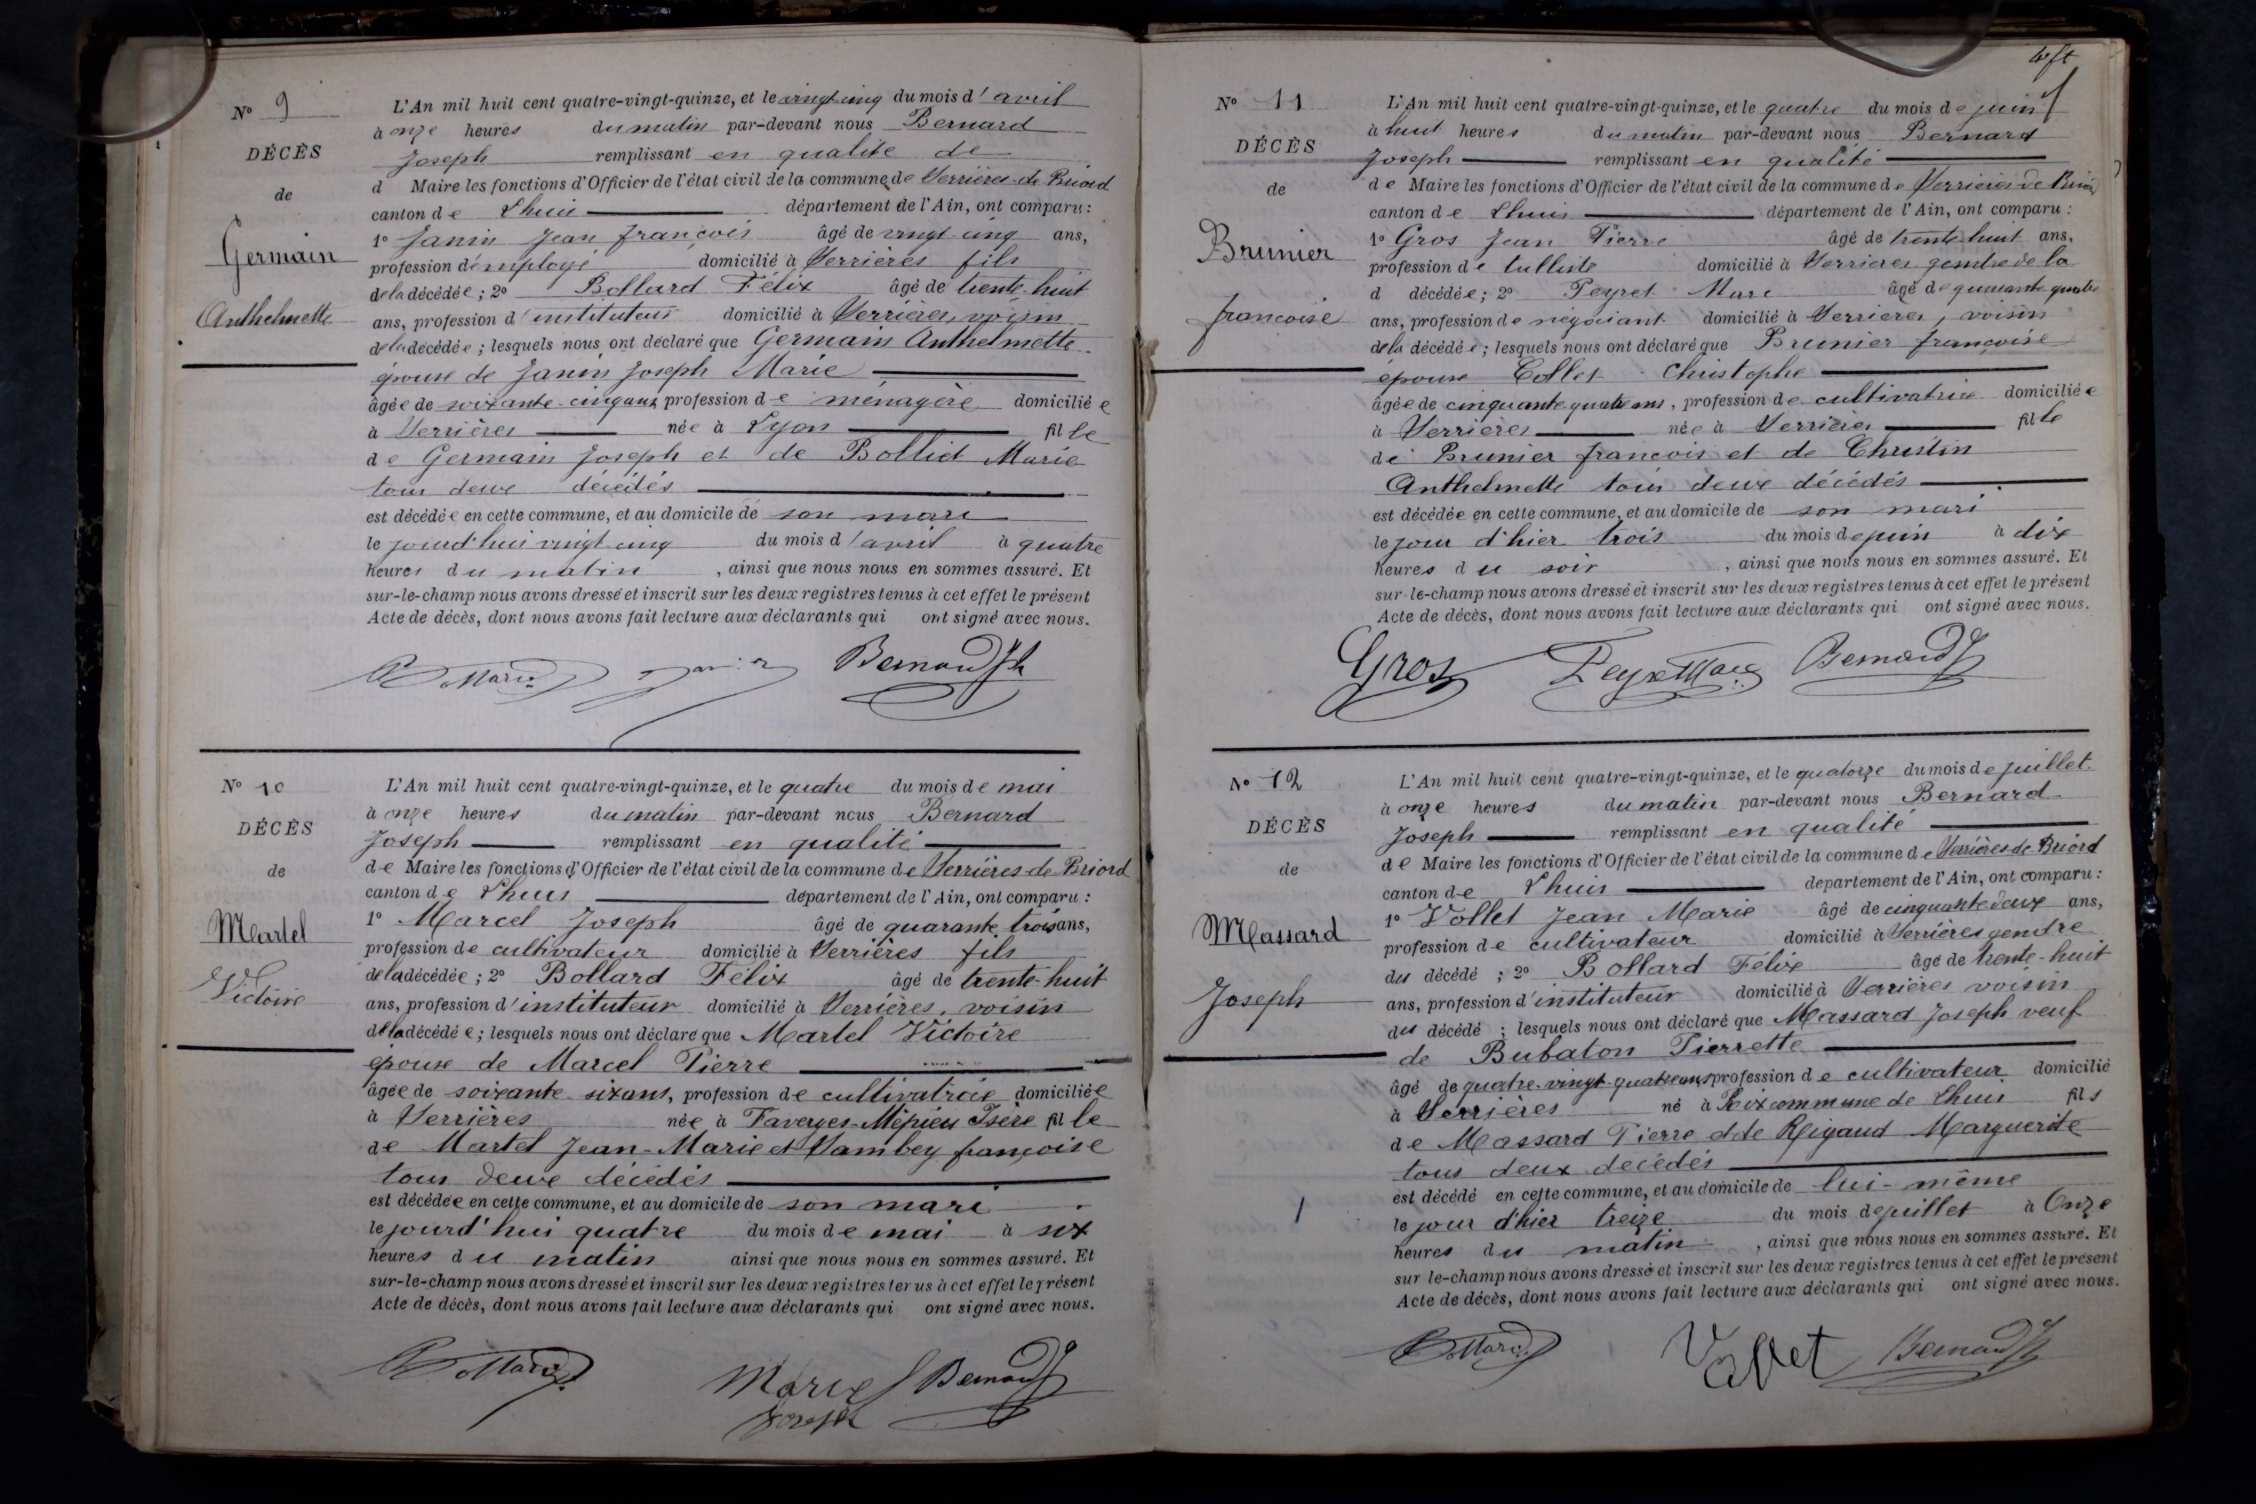 Nº 9
DÉCÈS
de
Germain
Anthelmette
L'An mil huit cent quatre-vingt-quinze, et le vingt cinq du mois d'avril
à onze heures du matin par-devant nous Bernard
Joseph remplissant en qualité de
d Maire les fonctions d'Officier de l'état civil de la commune de Verrières-de-Briord
canton de Lhuis département de l'Ain, ont comparu :
1º Janin Jean françois âgé de vingt cinq ans,
profession d'employé domicilié à Verrières fils
de la décédée ; 2º Bollard Félix âgé de trente-huit
ans, profession d'instituteur domicilié à Verrières, voisin
de la décédée ; lesquels nous ont déclaré que Germain Anthelmette
épouse de Janin Joseph Marie
âgée de soixante-cinq ans, profession de ménagère domiciliée
à Verrières née à Lyon fille
de Germain Joseph et de Bolliet Marie
tous deux décédés
est décédée en cette commune, et au domicile de son mari
le jourd'hui vingt cinq du mois d'avril à quatre
heures du matin, ainsi que nous nous en sommes assuré. Et
sur-le-champ nous avons dressé et inscrit sur les deux registres tenus à cet effet le présent
Acte de décès, dont nous avons fait lecture aux déclarants qui ont signé avec nous.
Bollard Janin Bernard Jh
Nº 10
DÉCÈS
de
Martel
Victoire
L'An mil huit cent quatre-vingt-quinze, et le quatre du mois de mai
à onze heures du matin par-devant nous Bernard
Joseph remplissant en qualité
de Maire les fonctions d'Officier de l'état civil de la commune de Verrières-de-Briord
canton de Lhuis département de l'Ain, ont comparu :
1º Marcel Joseph âgé de quarante trois ans,
profession de cultivateur domicilié à Verrières fils
de la décédée ; 2º Bollard Félix âgé de trente-huit
ans, profession d'instituteur domicilié à Verrières, voisin
de la décédée ; lesquels nous ont déclaré que Martel Victoire
épouse de Marcel Pierre
âgée de soixante-six ans, profession de cultivatrice domiciliée
à Verrières née à Faverges-Mépieu Isère fille
de Martel Jean-Marie et Vambey françoise
tous deux décédés
est décédée en cette commune, et au domicile de son mari
le jourd'hui quatre du mois de mai à six
heures du matin ainsi que nous nous en sommes assuré. Et
sur-le-champ nous avons dressé et inscrit sur les deux registres tenus à cet effet le présent
Acte de décès, dont nous avons fait lecture aux déclarants qui ont signé avec nous.
Bollard Marcel Bernard J
Joseph
Nº 11
DÉCÈS
de
Brunier
françoise
L'An mil huit cent quatre-vingt-quinze, et le quatre du mois de juin
à huit heures du matin par-devant nous Bernard
Joseph remplissant en qualité
de Maire les fonctions d'Officier de l'état civil de la commune de Verrières de Briord
canton de Lhuis département de l'Ain, ont comparu :
1º Gros Jean Pierre âgé de trente huit ans,
profession de tulliste domicilié à Verrieres gendre de la
d décédée ; 2º Peyret Marc âgé de quarante quatre
ans, profession de négociant domicilié à Verrieres, voisin
de la décédée ; lesquels nous ont déclaré que Brunier françoise
épouse Collet Christophe
âgée de cinquante quatre ans, profession de cultivatrice domiciliée
à Verrières née à Verrières fille
de Brunier francois et de Christin
Anthelmette tous deux décédés
est décédée en cette commune, et au domicile de son mari
le jour d'hier trois du mois de juin à dix
heures du soir, ainsi que nous nous en sommes assuré. Et
sur-le-champ nous avons dressé et inscrit sur les deux registres tenus à cet effet le présent
Acte de décès, dont nous avons fait lecture aux déclarants qui ont signé avec nous.
Gros Peyret Marc Bernard J
Nº 12
DÉCÈS
de
Massard
Joseph
L'An mil huit cent quatre-vingt-quinze, et le quatorze du mois de juillet
à onze heures du matin par-devant nous Bernard
Joseph remplissant en qualité
de Maire les fonctions d'Officier de l'état civil de la commune de Verrières-de-Briord
canton de Lhuis département de l'Ain, ont comparu :
1º Vollet Jean Marie âgé de cinquante deux ans,
profession de cultivateur domicilié à Verrières gendre
du décédé ; 2º Bollard Félix âgé de trente-huit
ans, profession d'instituteur domicilié à Verrières voisin
du décédé ; lesquels nous ont déclaré que Massard Joseph veuf
de Bubaton Pierrette
âgé de quatre-vingt-quatre ans profession de cultivateur domicilié
à Verrières né à Rix commune de Lhuis fils
de Massard Pierre et de Rigaud Marguerite
tous deux décédés
est décédé en cette commune, et au domicile de lui-même
le jour d'hier treize du mois de juillet à Onze
heures du matin, ainsi que nous nous en sommes assuré. Et
sur le-champ nous avons dressé et inscrit sur les deux registres tenus à cet effet le présent
Acte de décès, dont nous avons fait lecture aux déclarants qui ont signé avec nous.
Bollard Vollet Bernard J